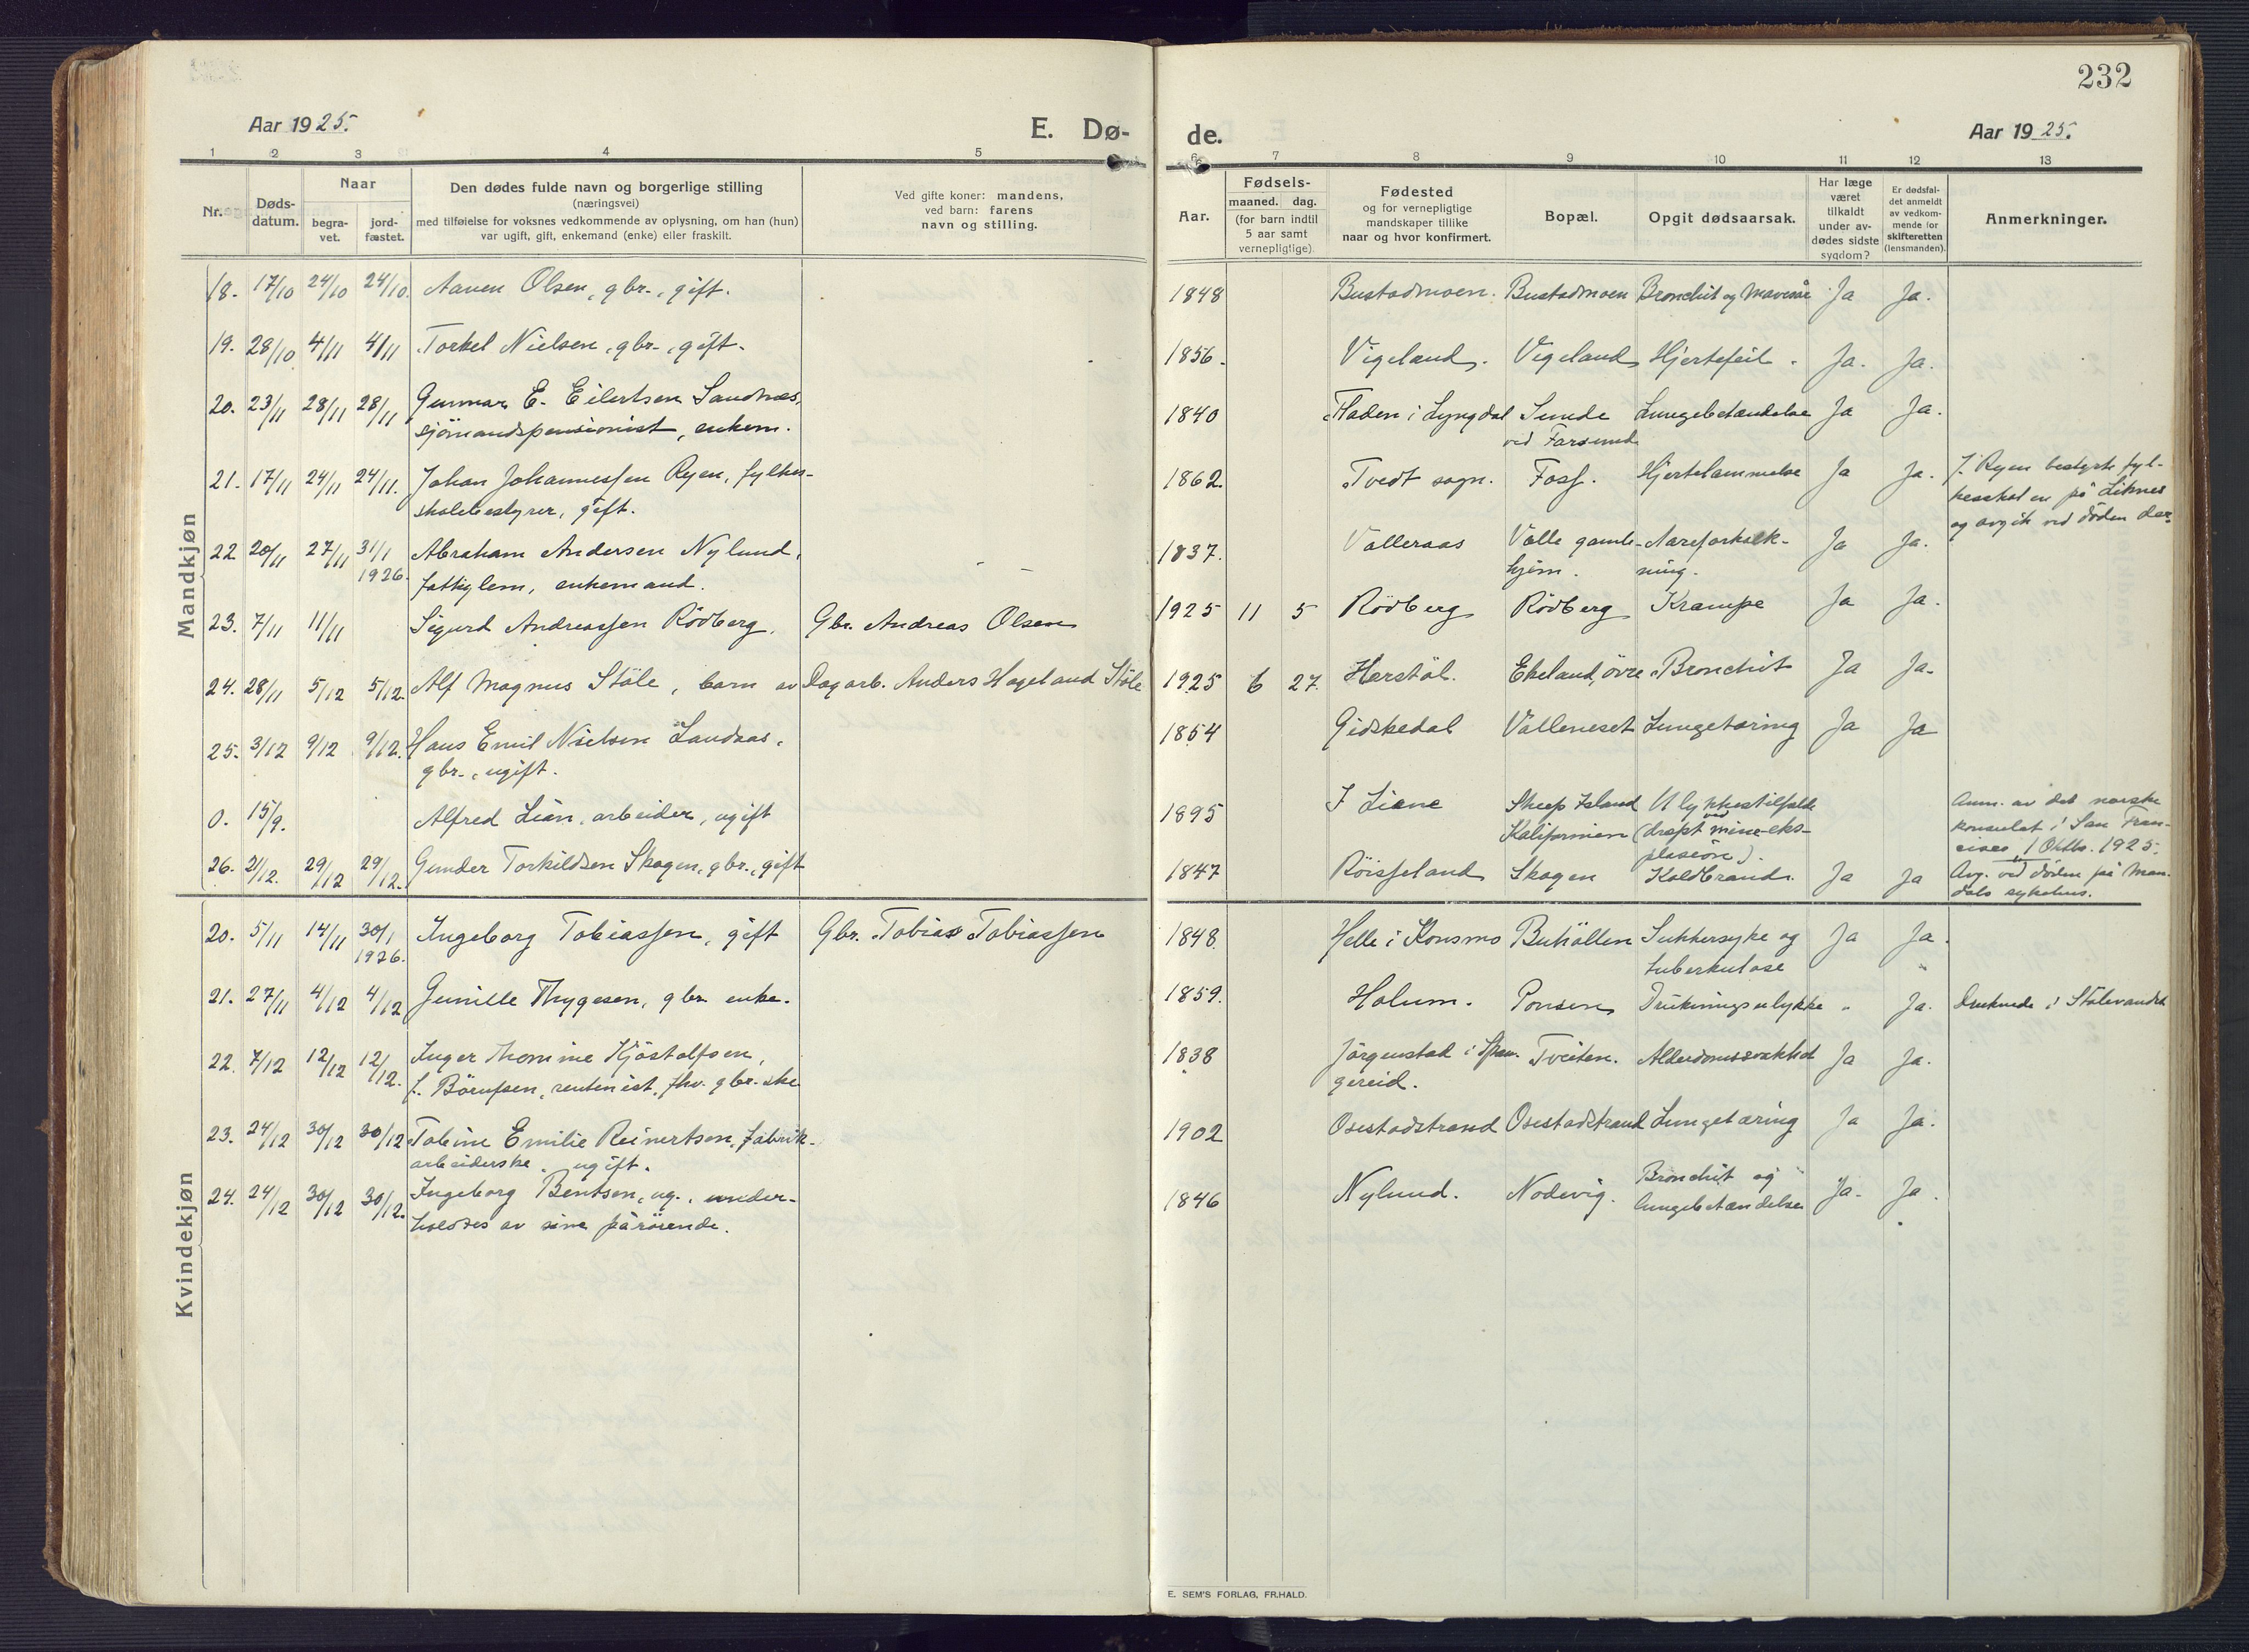 232
Aar 1925.
E. Dø-
de.
Aar 1925.
1 2 3 4 5 6 7 8 9 10 11 12 13
Nr.
Døds-
datum.
Naar
begra-
vet.
jord-
fæstet.
Den dødes fulde navn og borgerlige stilling
(næringsvei)
med tilføielse for voksnes vedkommende av oplysning, om han (hun)
var ugift, gift, enkemand (enke) eller fraskilt.
Ved gifte koner: mandens,
ved barn: farens
navn og stilling.
Aar.
Fødsels-
maaned. dag.
(for barn indtil
5 aar samt
vernepligtige).
Fødested
og for vernepligtige
mandskaper tillike
naar og hvor konfirmert.
Bopæl.
Opgit dødsaarsak.
Har læge
været
tilkaldt
under av-
dødes sidste
sygdom?
Er dødsfal-
det anmeldt
av vedkom-
mende for
skifteretten
(lensmanden).
Anmerkninger.
Mandkjøn
18. 17/10 24/10 24/10. Aanen Olsen, gbr., gift. 1848 Bustadmoen. Bustadmoen Bronchit og Mavesår Ja Ja.
19. 28/10 4/11 4/11 Torkel Nielsen, gbr., gift. 1856. Vigeland. Vigeland Hjertefeil. Ja. Ja.
20. 23/11 28/11 28/11 Gunnar E. Eilertsen Sandnes, 1840 i Lyngdal Sunde Lungebetændelse Ja Ja.
sjømandspensionist, enkem. ved Farsund
21. 17/11 24/11 24/11. Johan Johannessen Ryen, fylkes- 1862. Tvedt sogn. Foss. Hjertelammelse Ja Ja. J. Ryen bestyrte fyl-
skolebestyrer, gift. kesskolen på Liknes
og avgik ved døden der.
22 20/11 27/11 31/1 Abraham Andersen Nylund, 1837. Valleraas Valle gamle- Aareforkalk- Ja Ja.
1926. fattiglem, enkemand. hjem. ning.
23. 7/11 11/11 Sigurd Andreassen Rödberg. Gbr. Andreas Olsen 1925 11 5 Rödberg Rödberg Krampe Ja Ja.
24. 28/11 5/12 5/12. Alf Magnus Ståle, barn av Dagarb. Anders Hageland Ståle 1925 6 27. Harstöl. Ekeland, övre Bronchit Ja Ja.
25. 3/12 9/12 9/12. Hans Emil Nielsen Landaas, 1854 Gidskedal Valleneset Lungetæring Ja Ja
gbr., ugift.
0. 15/9. Alfred Lian, arbeider, ugift 1895 Sheep Island Ulykkestilfælde Anm. av det norske
Kalifornien (dræpt ved mine-eks- konsulat i San Fran-
plosion). cisco 1 Oktbr. 1925.
26. 21/12. 29/12 29/12. Gunder Torkildsen Skogen, gbr., gift 1847 Röisseland Skogen Koldbrand. Ja Ja Avg. ved döden på Man-
dals sykehus.
Kvindekjøn
20. 5/11 14/11 30/1 Ingeborg Tobiassen, gift Gbr. Tobias Tobiassen 1848. Helle i Konsmo Buhöllen Sukkersyke og Ja Ja.
1926. tuberkulose
21. 27/11 4/12 4/12 Gunille Thygesen, gbr. enke. 1859. Holum. Drukningsulykke - Ja. Druknede i Stålevandet
22. 7/12 12/12 12/12. Inger Thomine Kjöstolfsen, 1838 Jörgenstad i Span- Tveiten. Alderdomssvakhet Ja Ja.
f. Börufsen, rentenist, fhv. gbr.-ske gereid.
23. 24/12 30/12 30/12 Tobine Emilie Reinertsen, fabrik- 1902 Osestadstrand Osestadstrand Lungetæring Ja Ja.
arbeiderske, ugift.
24. 24/12 30/12 30/12. Ingeborg Bentsen, ug., under- 1846 Nylund. Nodevig. Bronchit og Ja. Ja.
holdtes av sine pårörende. lungebetændelse
E. SEM'S FORLAG, FR.HALD.